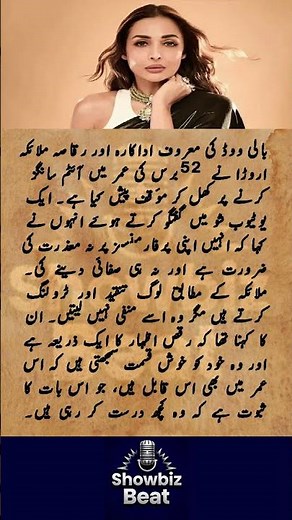 بالی ووڈ کی معروف اداکارہ اور رقاصہ ملائکہ
اروڑا نے 52 برس کی عمر میں آئٹم سانگز
کرنے پر کھل کر مؤقف پیش کیا ہے۔ ایک
یوٹیوب شو میں گفتگو کرتے ہوئے انہوں نے
کہا کہ انہیں اپنی پرفارمنسز پر نہ معذرت کی
ضرورت ہے اور نہ ہی صفائی دینے کی۔
ملائکہ کے مطابق لوگ تنقید اور ٹرولنگ
کرتے ہیں مگر وہ اسے منفی نہیں لیتیں۔ ان
کا کہنا تھا کہ رقص اظہار کا ایک ذریعہ ہے
اور وہ خود کو خوش قسمت سمجھتی ہیں کہ اس
عمر میں بھی اس قابل ہیں، جو اس بات کا
ثبوت ہے کہ وہ کچھ درست کر رہی ہیں۔
Showbiz
Beat